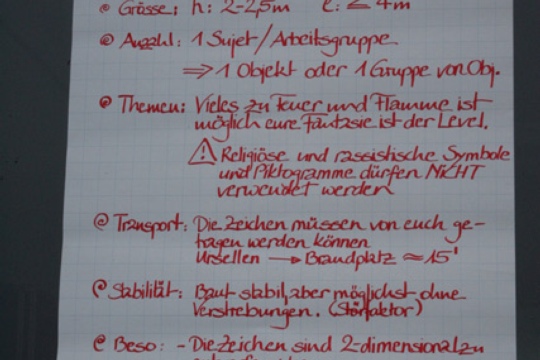 Grösse: h: 2-2,5m l: ≤ 4m
Anzahl: 1 Sujet/Arbeitsgruppe
⇒ 1 Objekt oder 1 Gruppe von Obj.
Themen: Vieles zu Feuer und Flamme ist
möglich eure Fantasie ist der Level.
⚠ Religiöse und rassistische Symbole
und Piktogramme dürfen NICHT
verwendet werden
Transport: Die Zeichen müssen von euch ge-
tragen werden können
Ursellen → Brandplatz ≈ 15'
Stabilität: Baut stabil, aber möglichst ohne
Verstrebungen. (Störfaktor)
Beso: - Die Zeichen sind 2-dimensional zu